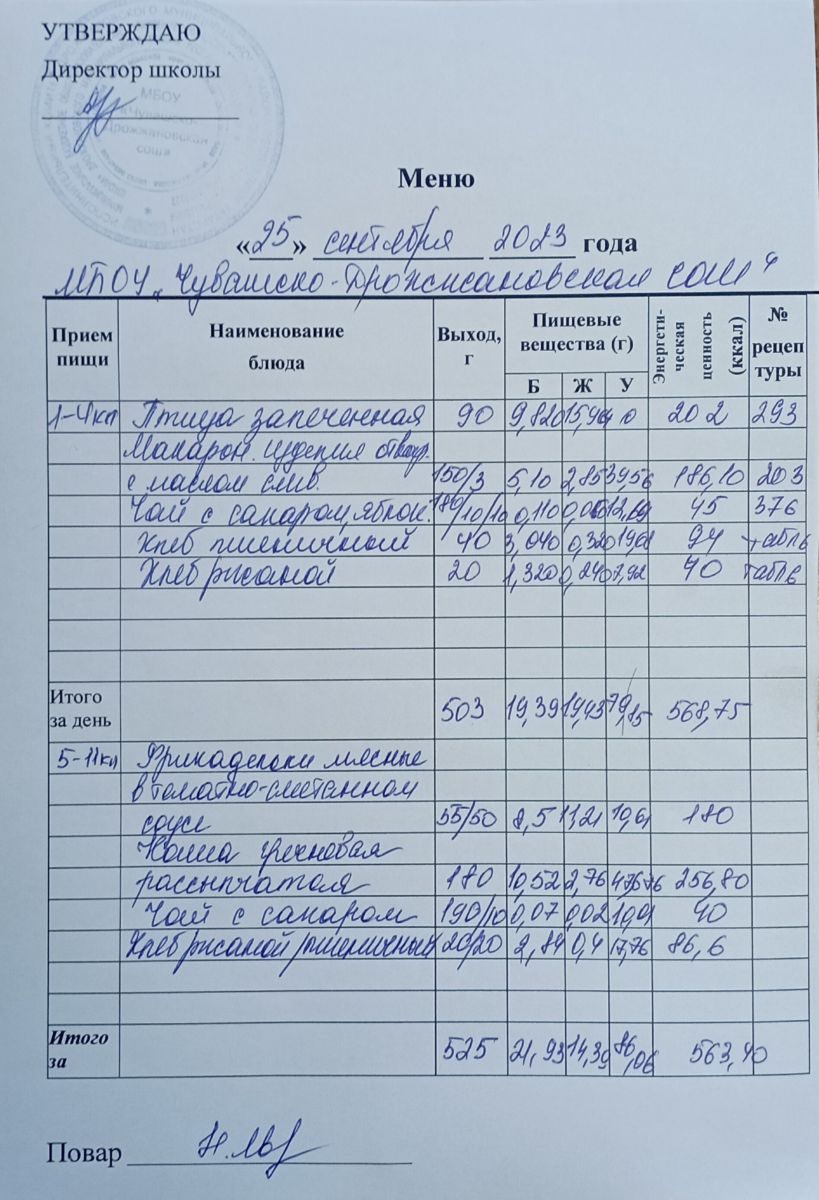 УТВЕРЖДАЮ
Директор школы
МБОУ
«Чувашско-
Дрожжановская
сош»
Меню
«25» сентября 2023 года
МБОУ „Чувашско-Дрожжановская сош“
Прием пищи Наименование блюда Выход, г Пищевые вещества (г) Энергети-ческая ценность (ккал) № рецептуры
Б Ж У
1-4кл Птица запеченная 90 9,820 15,94 0 202 293
Макарон. изделия отвар.
с маслом слив. 150/3 5,10 2,85 39,56 186,10 203
Чай с сахаром, яблок. 180/10/10 0,110 12,69 45 376
Хлеб пшеничный 40 3,040 0,320 19,68 94 табль
Хлеб ржаной 20 1,320 0,240 7,92 40 табль
Итого
за день 503 19,39 19,43 79,85 568,75
5-11кл Фрикадельки мясные
в томатно-сметанном
соусе 55/50 8,5 11,21 10,61 180
Каша гречневая
рассыпчатая 180 10,52 2,76 256,80
Чай с сахаром 190/10 0,07 0,02 10,01 40
Хлеб ржаной/пшеничный 20/20 2,84 0,4 17,76 86,6
Итого
за 525 21,93 14,39 86,06 563,40
Повар